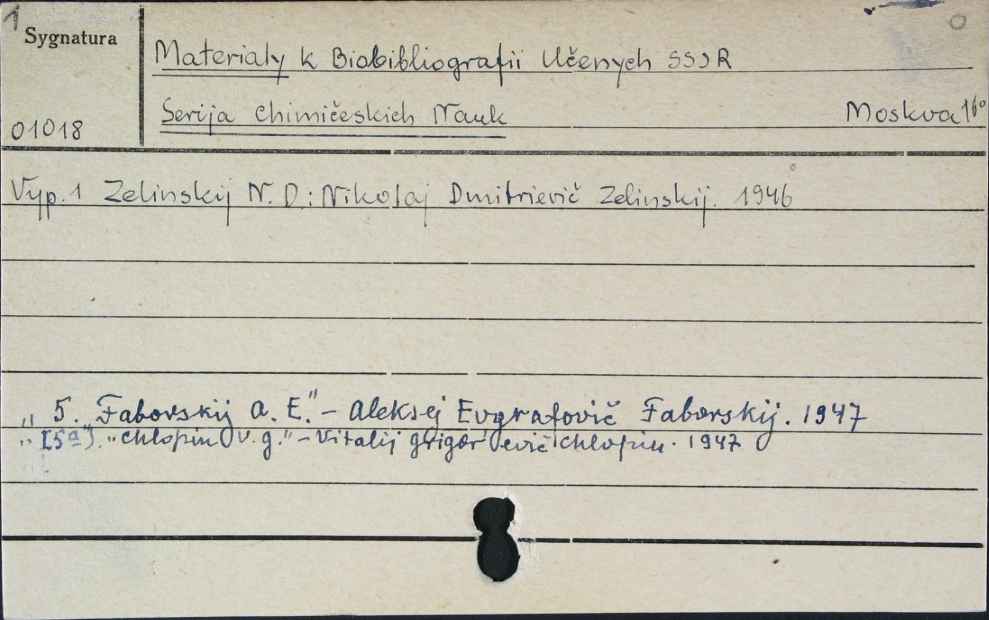 1
Sygnatura
Materialy k Biobibliografii Učenych SSSR
Serija Chimičeskich Nauk Moskva 16°
01018
Vyp. 1 Zelinskij N. D.: Nikolaj Dmitrievič Zelinskij. 1946
„ 5. Faborskij A. E." – Aleksej Evgrafovič Faborskij. 1947
„ [5a]. „Chlopin V. G." – Vitalij Grigor'evič Chlopin. 1947